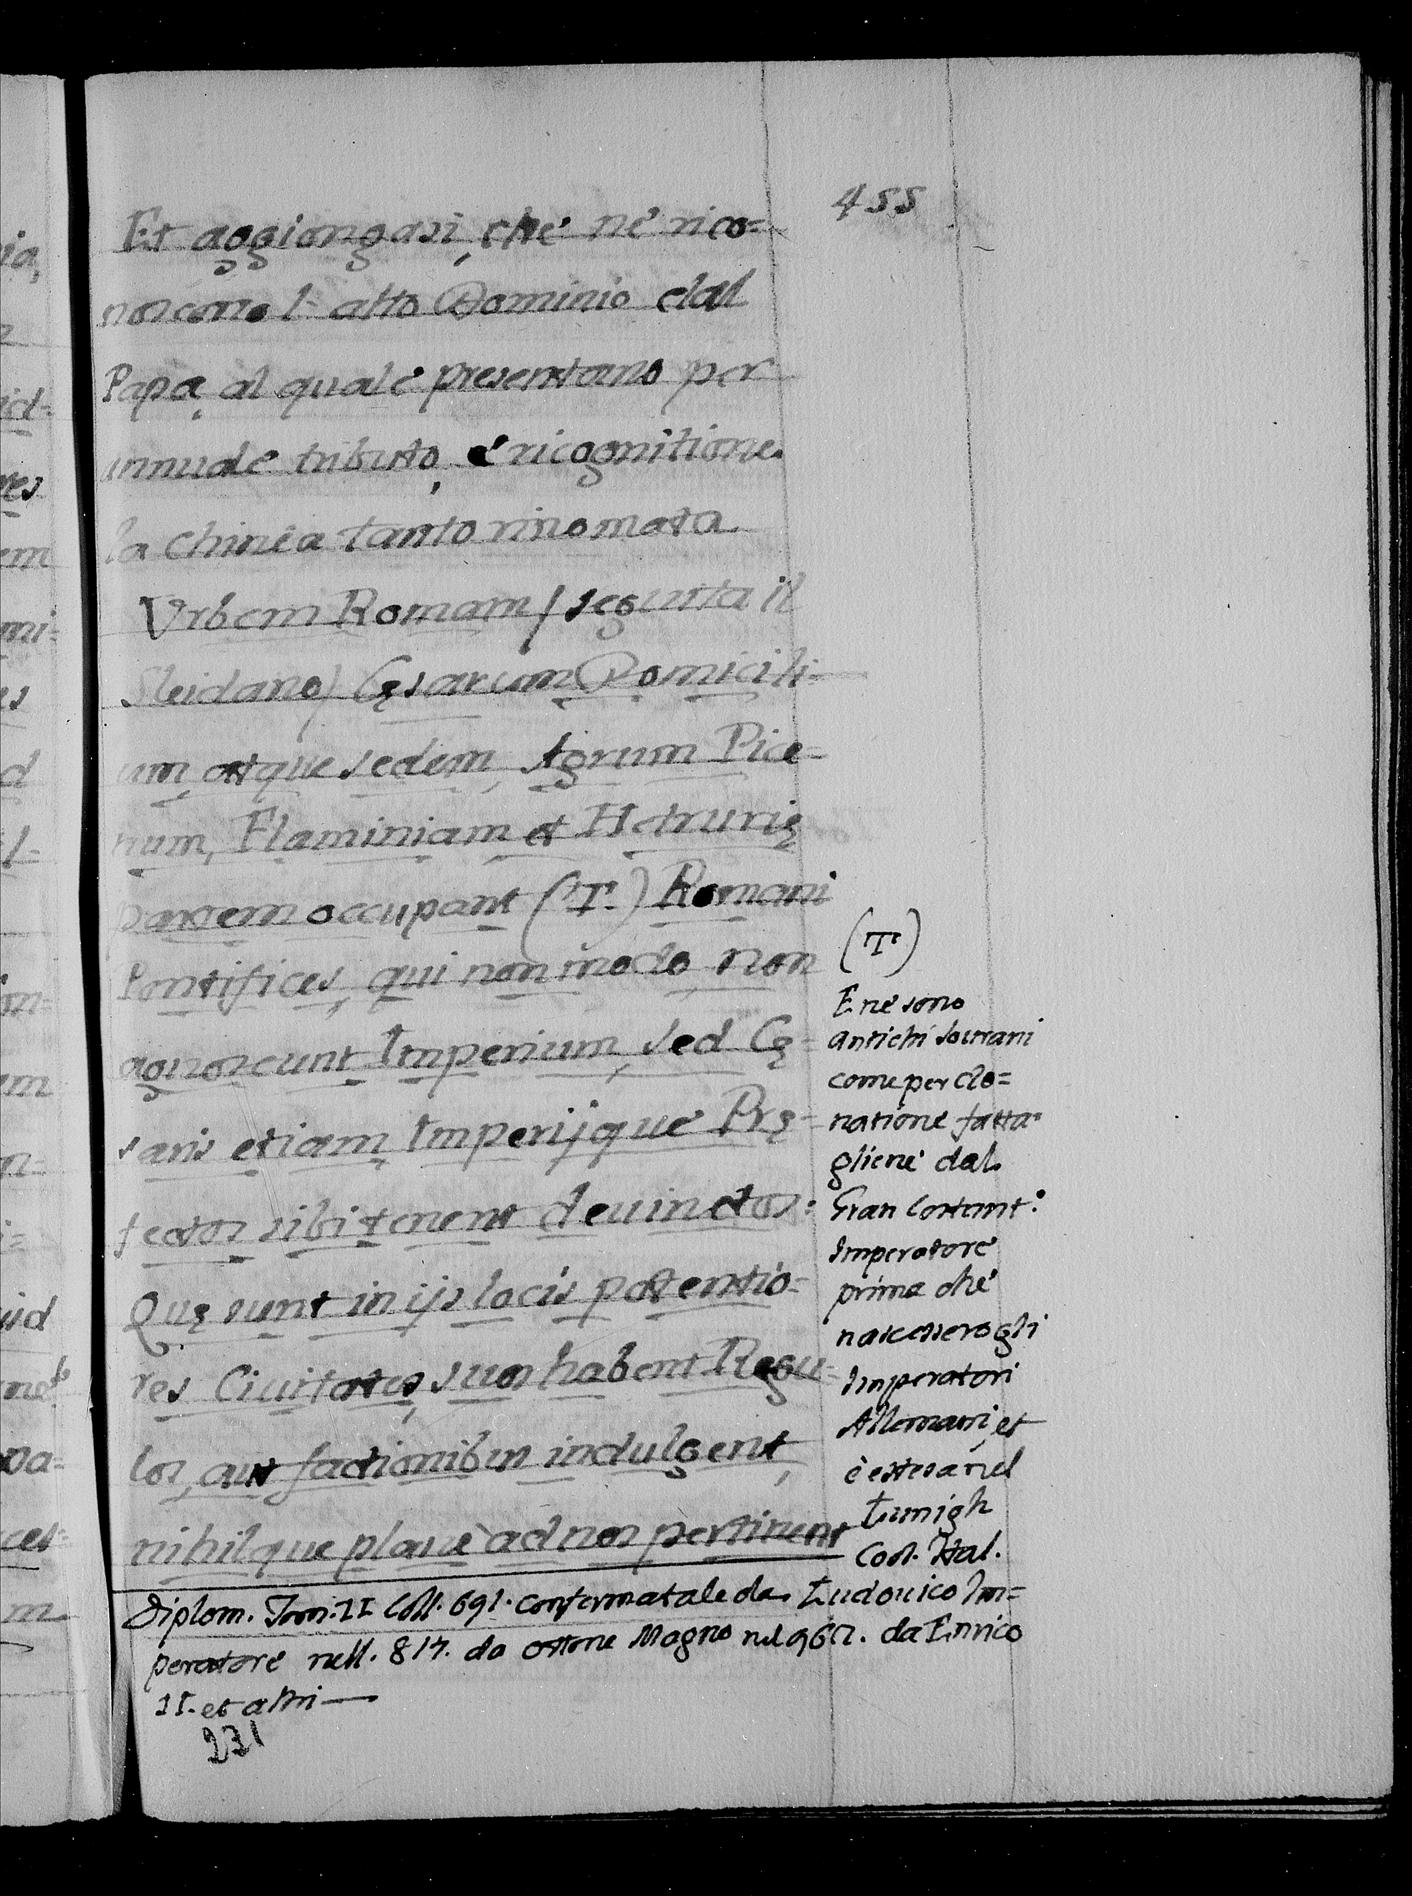 455
Et aggiongasi, che ne rico=
noscono l'alto Dominio dal
Papa, al quale presentano per
annuale tributo, e ricognitione
la chinea tanto rinomata
Vrbem Romam / seguita il
Sleidano / Cęsarum Domicili=
um, atque sedem, Agrum Pice=
num, Flaminiam et Hetrurię
partem occupant (T.) Romani
Pontifices, qui non modo non
agnoscunt Imperium, sed Cę=
saris etiam Imperijque Prę=
fectos sibi tenent deuinctos:
Quę sunt in ijs locis potentio=
res Ciuitates, suos habent Regu=
los, aut factionibus indulgent,
nihilque planè ad nos pertinent
(T.)
E ne sono
antichi sourani
come per do=
natione fatta=
gliene dal
Gran Costant.º
Imperatore
prima che
nascessero gli
Imperatori
Allemani, et
è estesa nel
Lunigh
Cod. Ital.
Diplom. Tom. II Coll. 691. confermatale da Ludouico Im=
peratore nell. 817. da Ottone Magno nel 962. da Enrico
II. et altri —
231